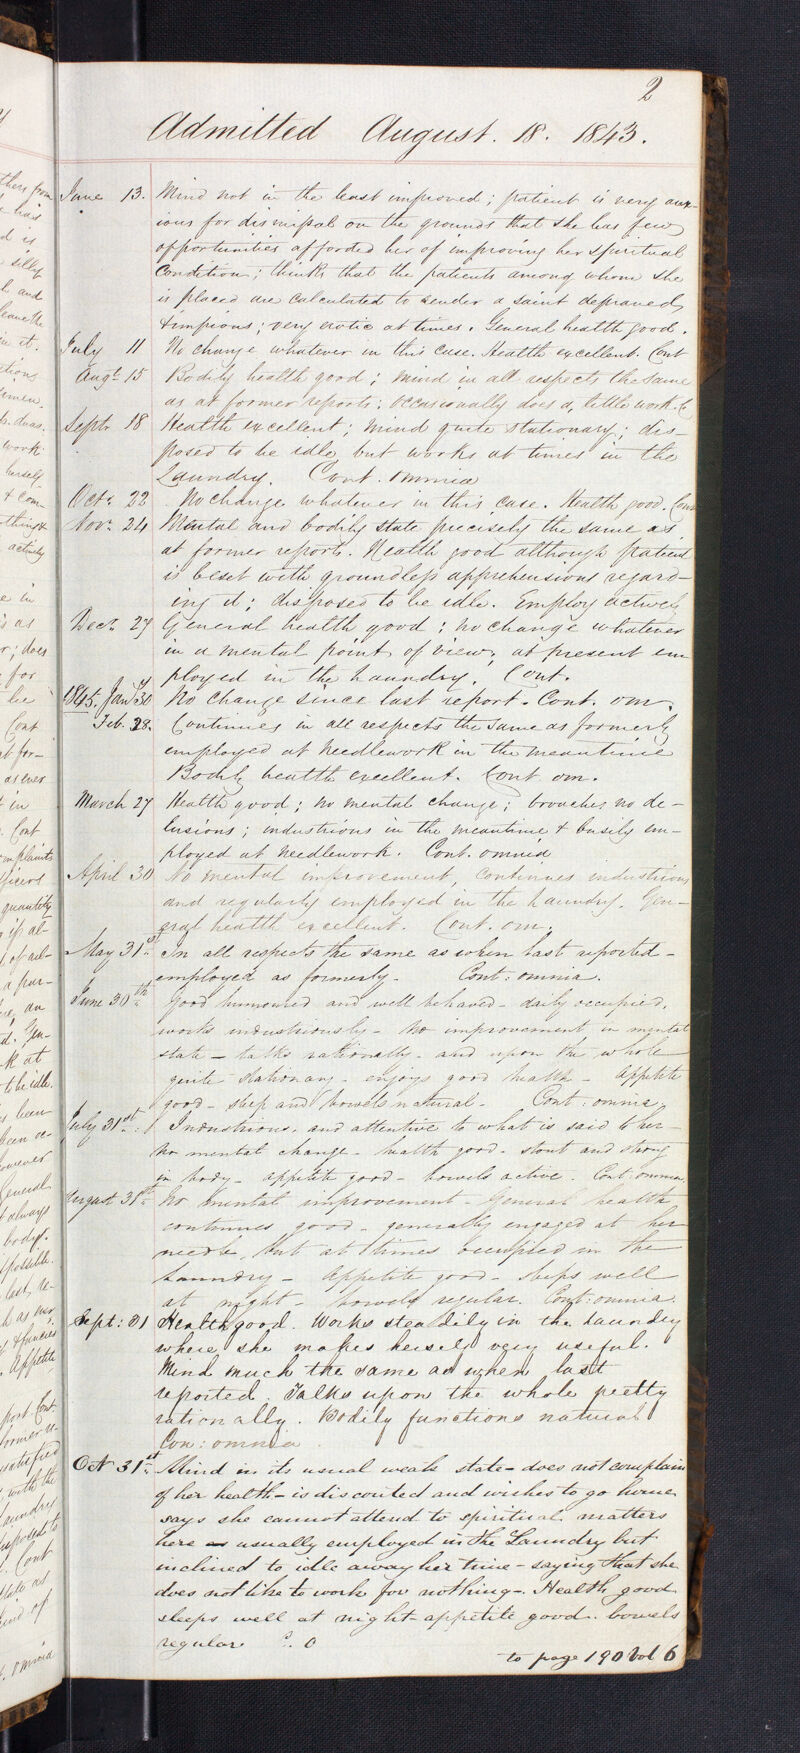 2
Admitted August. 18. 1843.
June 13. Mind not in the least improved; patient is very anx-
ious for dismissal on the grounds that she has few
opportunities afforded her of improving her spiritual
condition; thinks that the patients among whom she
is placed are calculated to render a saint depraved
& impious; very erotic at times. General health good.
July 11 No change whatever in this case. Health excellent. Cont
Augt. 15 Bodily health good; mind in all respects the same
as at former reports; occasionally does a little work. C
Septr. 18 Health excellent; mind quite stationary; dis-
posed to be idle but works at times in the
Laundry. Cont. omnia
Octr. 22 No change whatever in this case. Health good. Cont
Novr. 24 Mental and bodily state precisely the same as
at former reports. Health good although patient
is beset with groundless apprehensions regard-
ing it; disposed to be idle. Employ actively
Decr. 27 General health good; no change whatever
in a mental point of view; at present em
ployed in the Laundry. Cont.
1845. Jany 30 No change since last report. Cont. om.
Feb. 28. Continues in all respects the same as formerly
employed at needlework in the meantime
Bodily health excellent. Cont om.
March 27 Health good; no mental change; broaches no de-
lusions; industrious in the meantime & busily em-
ployed at needlework. Cont. omnia
April 30 No mental improvement, continues industrious
and regularly employed in the Laundry. Gen-
eral health excellent. Cont. om.
May 31st. In all respects the same as when last reported -
employed as formerly - Cont: omnia.
June 30th. Good humoured and well behaved - daily occupied,
works industriously - No improvement in mental
state - talks rationally - and upon the whole
quite stationary - enjoys good health - appetite
good - sleep and bowels natural - Cont: omnia.
July 31st. Industrious - and attentive to what is said to her -
no mental change - health good - stout and strong
in body - appetite good - bowels active. Cont: omnia.
August 31st. No mental improvement - General health
continues good - generally engaged at her
needle, but at times occupied in the
Laundry - appetite good - sleeps well
at night - bowels regular. Cont: omnia.
Sept: 31 Health good. Works steadily in the Laundry
where she makes herself very useful.
Mind much the same as when last
reported. Talks upon the whole pretty
rationally. Bodily functions natural
Con: omnia
Oct 31st. Mind in its usual weak state - does not complain
of her health - is discontented and wishes to go home
says she cannot attend to spiritual matters
here usually employed in the Laundry but
inclined to idle away her time - saying that she
does not like to work for nothing -. Health good
sleeps well at night - appetite good. bowels
regular C. O
to page 190 Vol 6